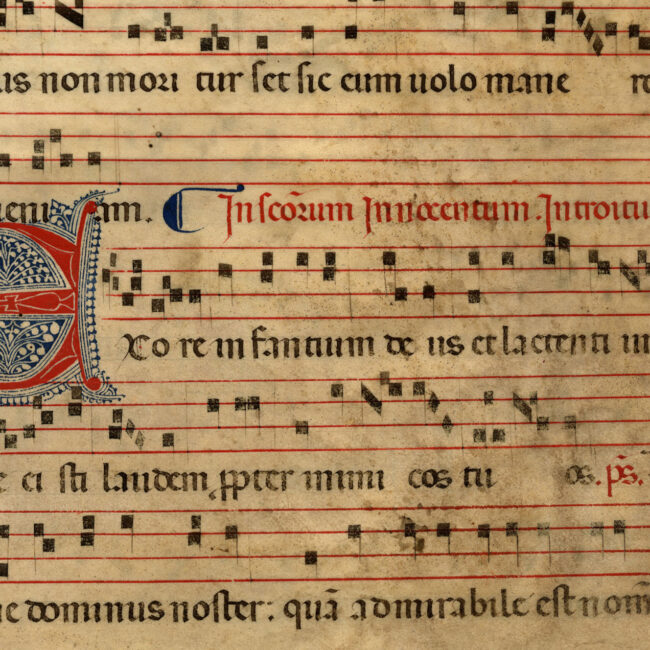 us non mori tur set sic eum uolo mane re
ueni am. In scõrum Innocentum. Introitu
EX o re in fantium de us et lactenti um
e ci sti laudem ꝓpter inimi cos tu os. p̃s.
ne dominus noster: quã admirabile est nom̃